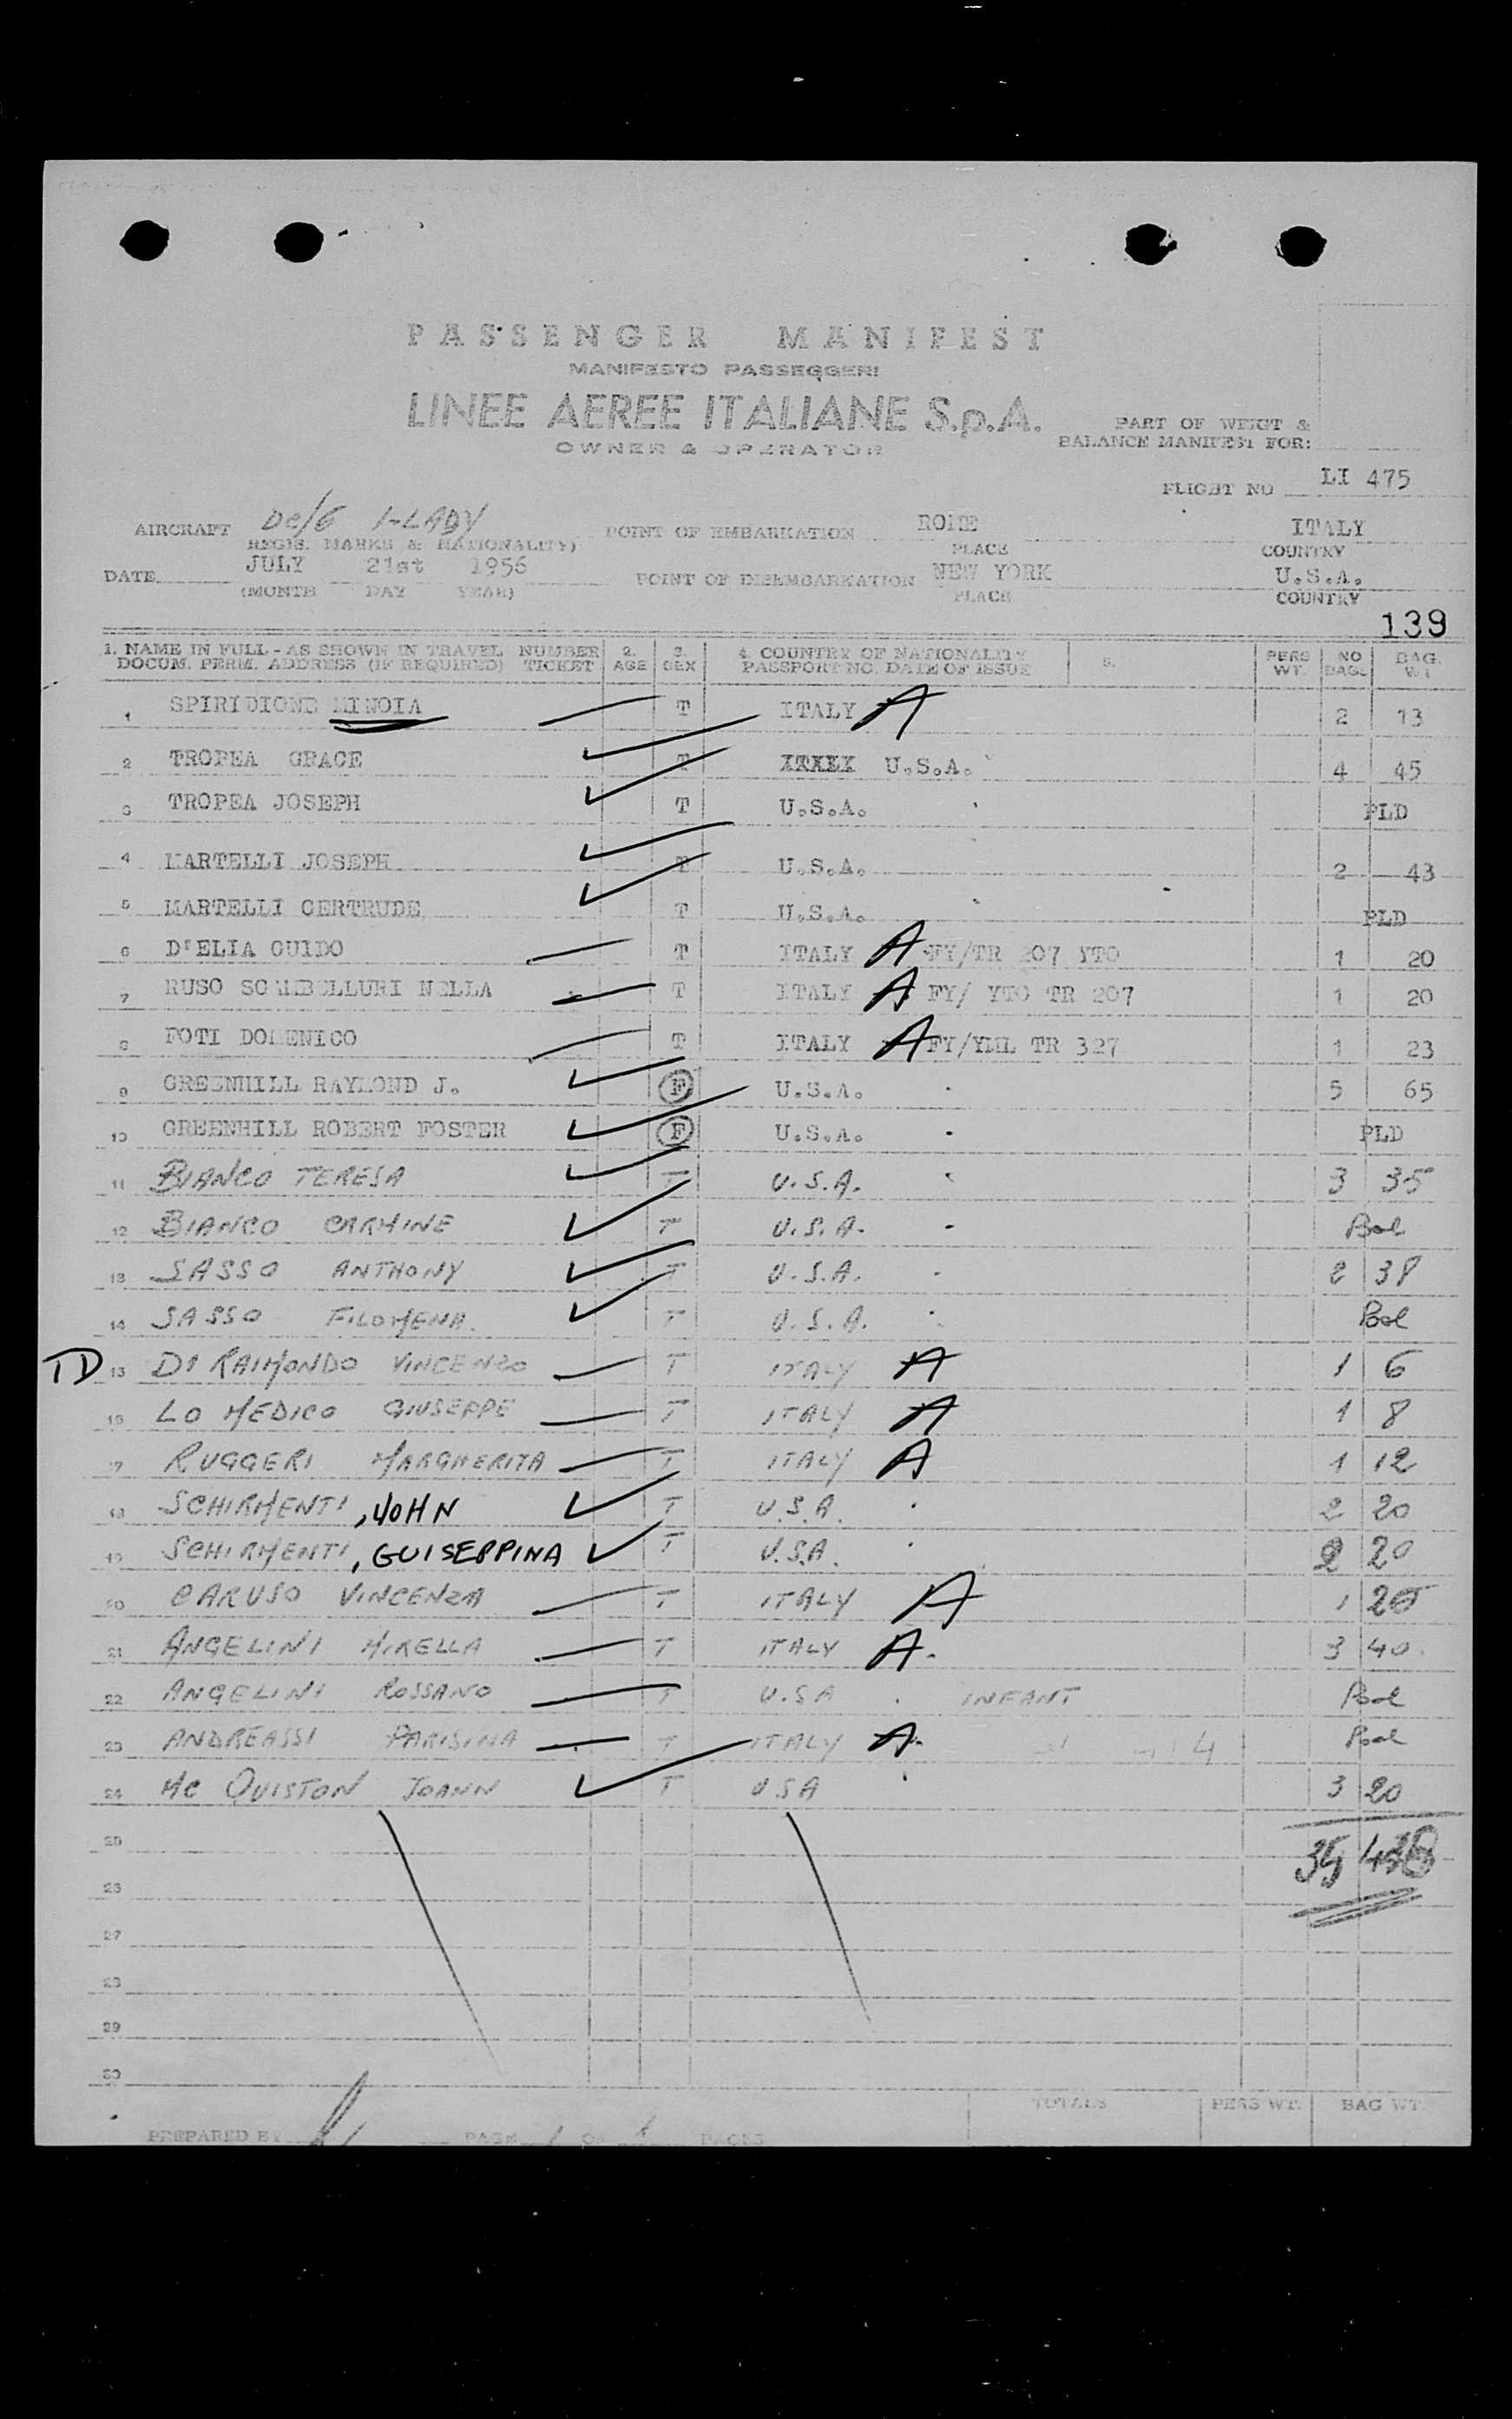 PASSENGER MANIFEST
MANIFESTO PASSEGGERI
LINEE AEREE ITALIANE S.p.A.
OWNER & OPERATOR
PART OF WEIGT &
BALANCE MANIFEST FOR:
FLIGHT NO LI 475
AIRCRAFT DC/6 I-LADY POINT OF EMBARKATION ROME ITALY
REGIS. MARKS & NATIONALITY) PLACE COUNTRY
DATE JULY 21st 1956 POINT OF DISEMBARKATION NEW YORK U.S.A.
(MONTH DAY YEAR) PLACE COUNTRY
139
1. NAME IN FULL - AS SHOWN IN TRAVEL NUMBER 2. 3. 4. COUNTRY OF NATIONALITY 5. PERS NO BAG.
DOCUM. PERM. ADDRESS (IF REQUIRED) TICKET AGE SEX PASSPORT NO. DATE OF ISSUE WT. BAGS WT
1 SPIRIDIONE MINOIA T ITALY A 2 13
2 TROPEA GRACE T U.S.A. 4 45
3 TROPEA JOSEPH T U.S.A. PLD
4 MARTELLI JOSEPH T U.S.A. 2 43
5 MARTELLI GERTRUDE T U.S.A. PLD
6 D'ELIA GUIDO T ITALY A FY/TR 207 YTO 1 20
7 RUSO SCAMBELLURI NELLA T ITALY A FY/ YTO TR 207 1 20
8 FOTI DOMENICO T ITALY A FY/YML TR 327 1 23
9 GREENHILL RAYMOND J. F U.S.A. 5 65
10 GREENHILL ROBERT FOSTER F U.S.A. PLD
11 BIANCO TERESA T U.S.A. 3 35
12 BIANCO CARMINE T U.S.A. Pool
13 SASSO ANTHONY T U.S.A. 2 38
14 SASSO FILOMENA. T U.S.A. Pool
TD 15 DI RAIMONDO VINCENZO T ITALY A 1 6
16 LO MEDICO GIUSEPPE T ITALY A 1 8
17 RUGGERI MARGHERITA T ITALY A 1 12
18 SCHIRMENTI, JOHN T U.S.A. 2 20
19 SCHIRMENTI, GUISEPPINA T U.S.A. 2 20
20 CARUSO VINCENZA T ITALY A 1 20
21 ANGELINI MIRELLA T ITALY A. 3 40
22 ANGELINI ROSSANO T U.S.A INFANT Pool
23 ANDREASSI PARISINA T ITALY A. Pool
24 MC QUISTON JOANN T USA 3 20
25 35 438
26
27
28
29
30
TOTALS PERS WT. BAG WT.
PREPARED BY PAGE 1 OF 1 PAGES